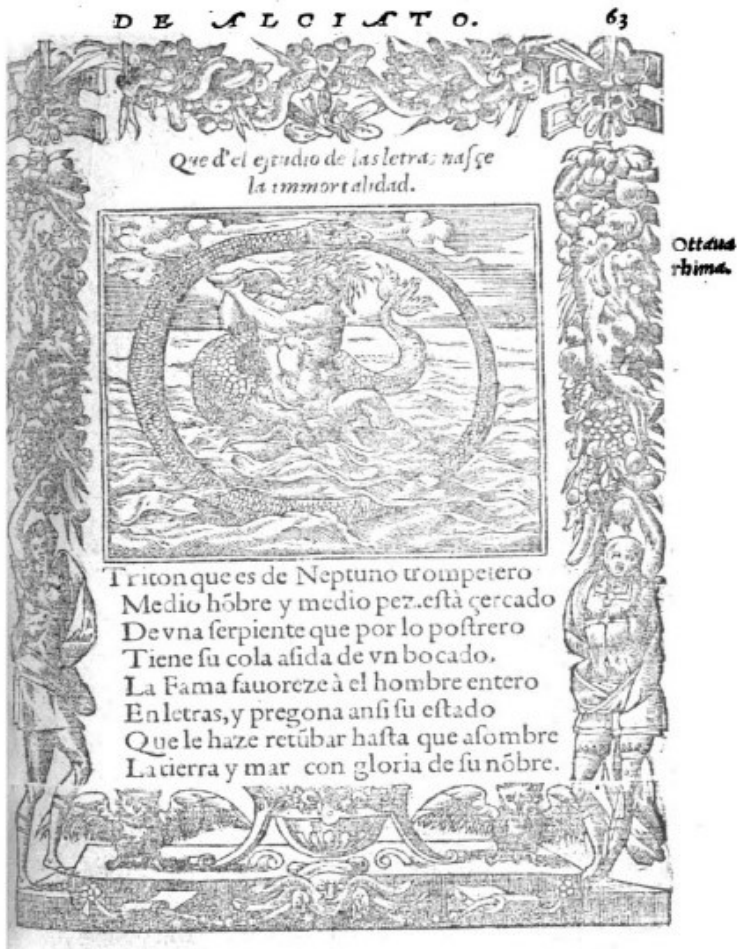 DE ALCIATO. 63
Que d'el estudio de las letras nasçe
la immortalidad.
Ottaua
rhima.
Triton que es de Neptuno trompetero
Medio hõbre y medio pez.està çercado
De vna serpiente que por lo postrero
Tiene su cola asida de vn bocado,
La Fama fauoreze à el hombre entero
En letras, y pregona ansi su estado
Que le haze retũbar hasta que asombre
La tierra y mar con gloria de su nõbre.